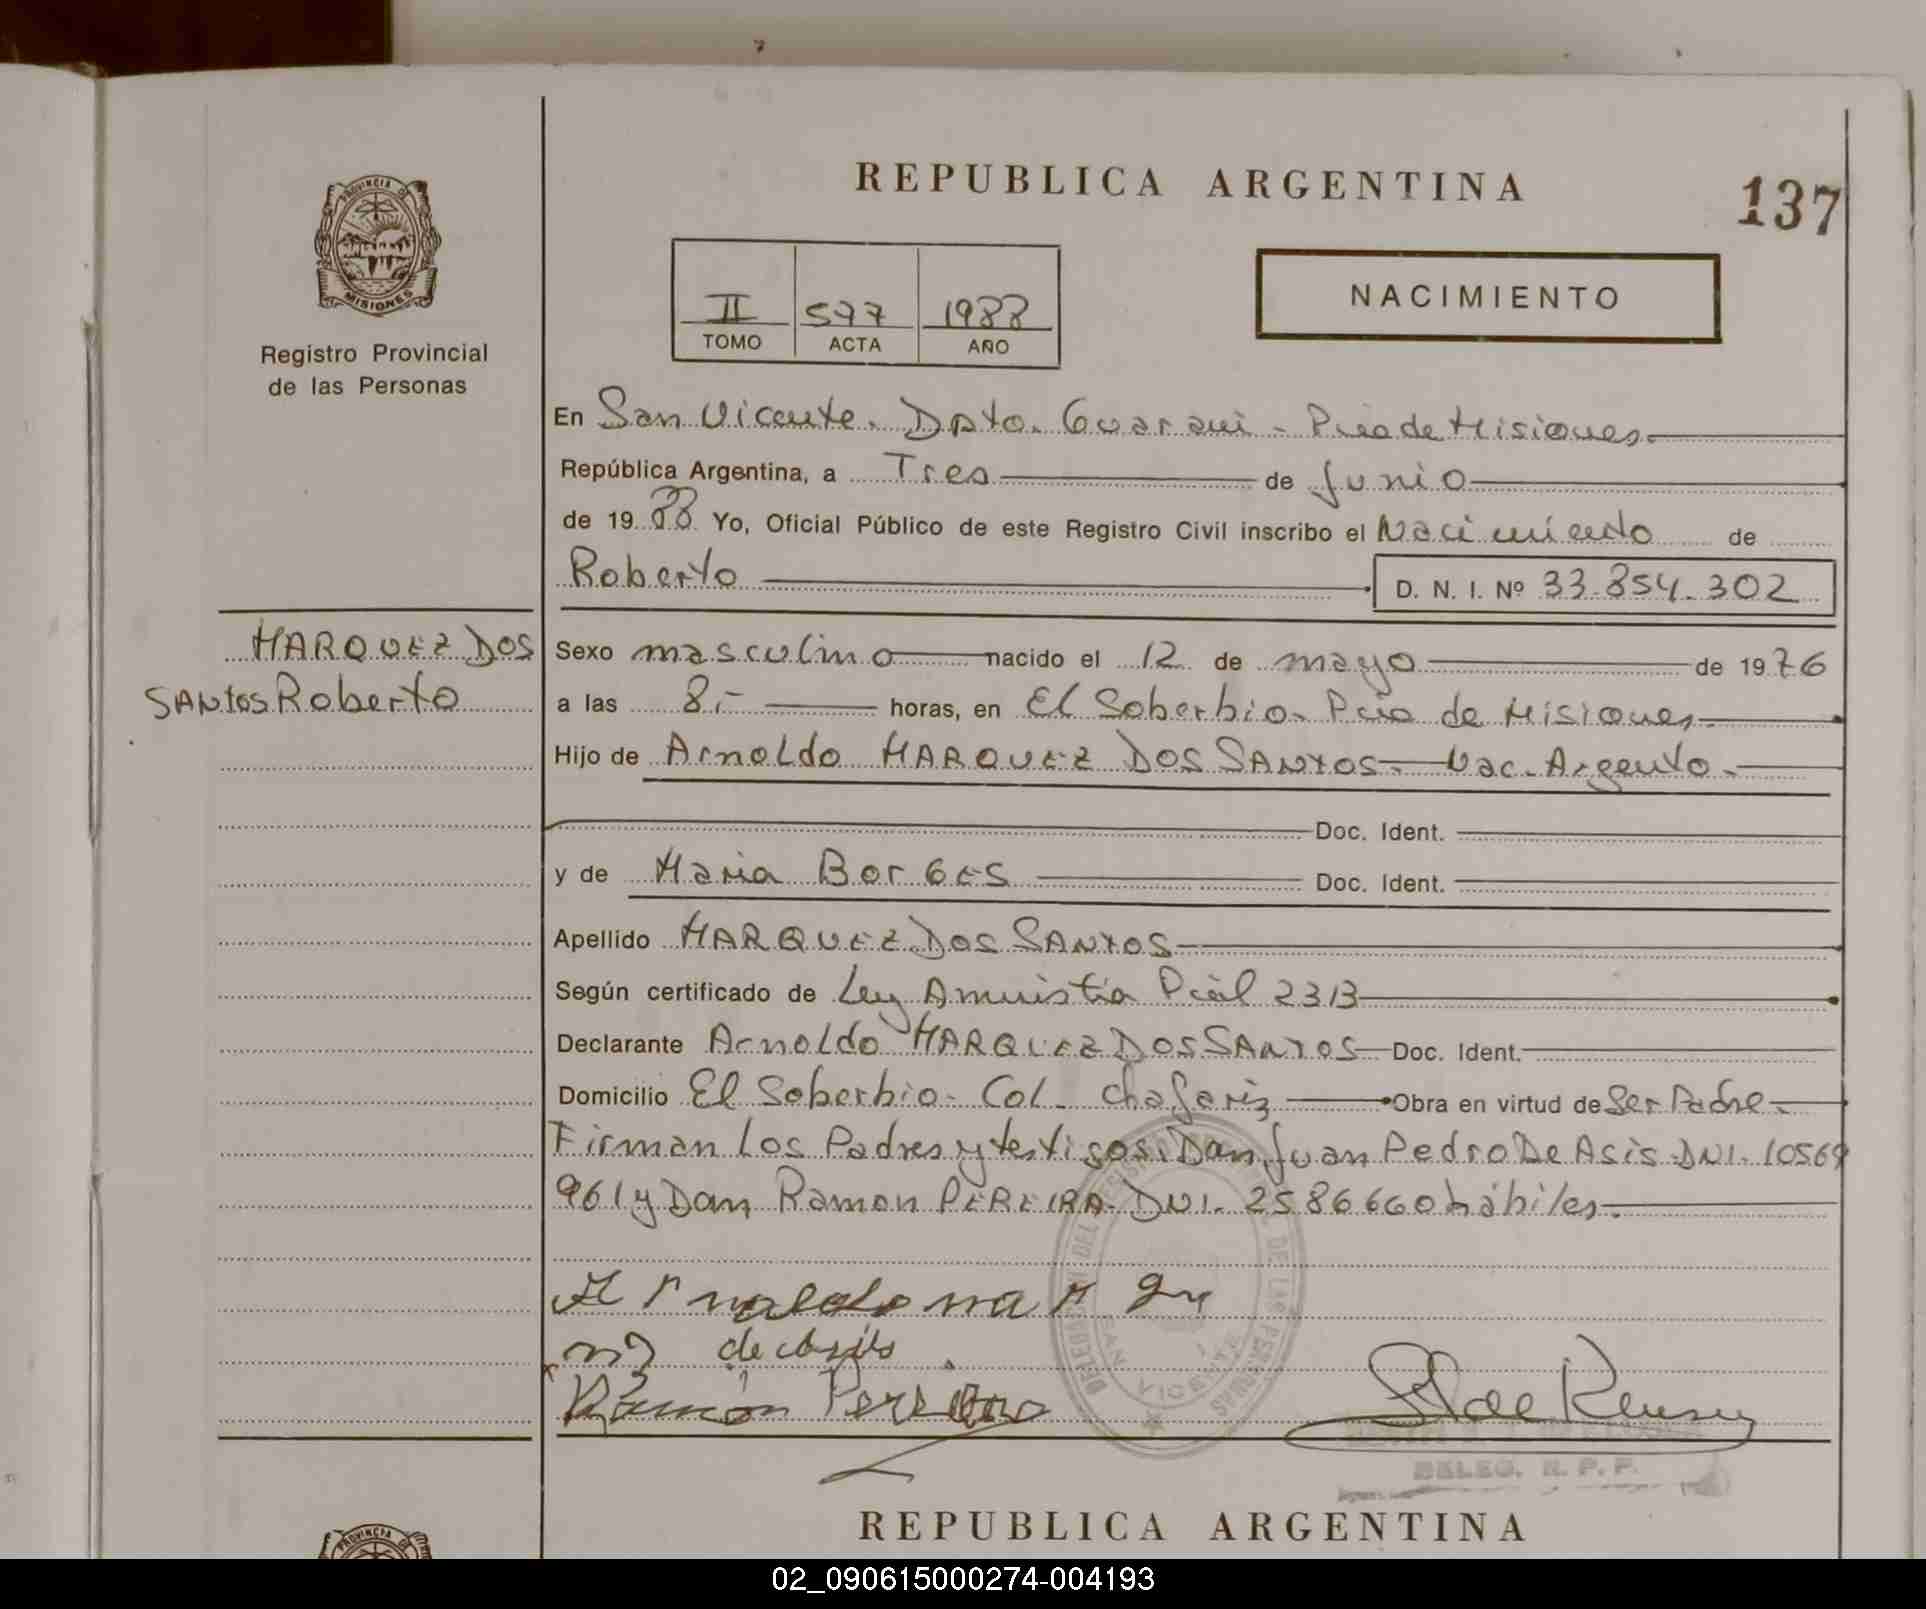 REPUBLICA ARGENTINA
137
PROVINCIA DE
MISIONES
Registro Provincial
de las Personas
II 577 1988
TOMO ACTA AÑO
NACIMIENTO
En San Vicente. Dpto. Guarani - Pcia de Misiones.
República Argentina, a Tres de Junio
de 19 88 Yo, Oficial Público de este Registro Civil inscribo el Nacimiento de
Roberto D. N. I. Nº 33.854.302
MARQUEZ DOS
SANtos Roberto
Sexo masculino nacido el 12 de mayo de 1976
a las 8.- horas, en El Soberbio. Pcia de Misiones.
Hijo de Arnoldo MARQUEZ DOS SANTOS. Nac. Argento.
Doc. Ident.
y de Maria BorGES Doc. Ident.
Apellido MARQUEZ DOS SANTOS
Según certificado de Ley Amnistia Pcial 2313
Declarante Arnoldo MARQUEZ DOS SANTOS Doc. Ident.
Domicilio El Soberbio. Col. Chafariz Obra en virtud de Ser Padre.
Firman Los Padres y testigos. Don Juan Pedro De Asis. DNI. 10569
961 y Don Ramon PEREIRA. DNI. 2586660 hábiles.
de asis
Ramón Pereira
SAN VICENTE
DELEG. R. P. P.
REPUBLICA ARGENTINA
PROVINCIA DE
02_090615000274-004193